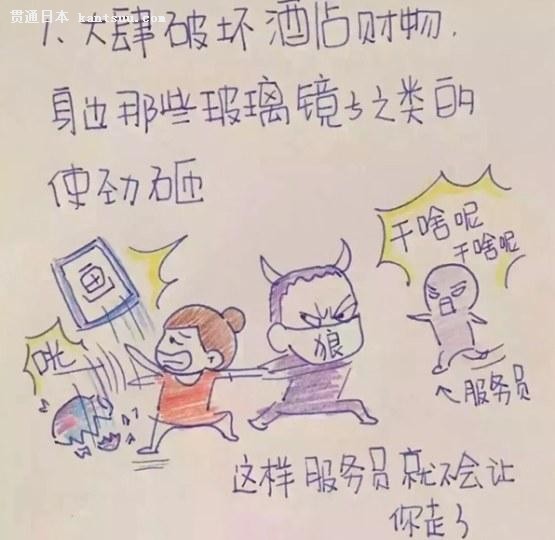 贯通日本 kantsuu.com
1. 大肆破坏酒店财物.
身边那些玻璃镜子之类的
使劲砸
画
咣
狼
干啥呢
干啥呢
服务员
这样服务员就不会让
你走了